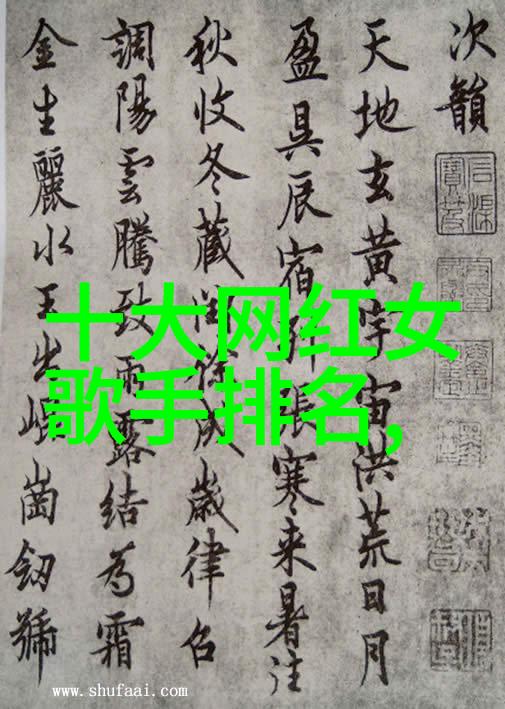 次韻
天地玄黄宇宙洪荒日月
盈昃辰宿列張寒来暑往
秋收冬藏閏餘成歲律召
調陽雲騰致雨露結為霜
金生麗水玉出崐崗劒號
十大网红女
歌手排名,
www.shufaai.com